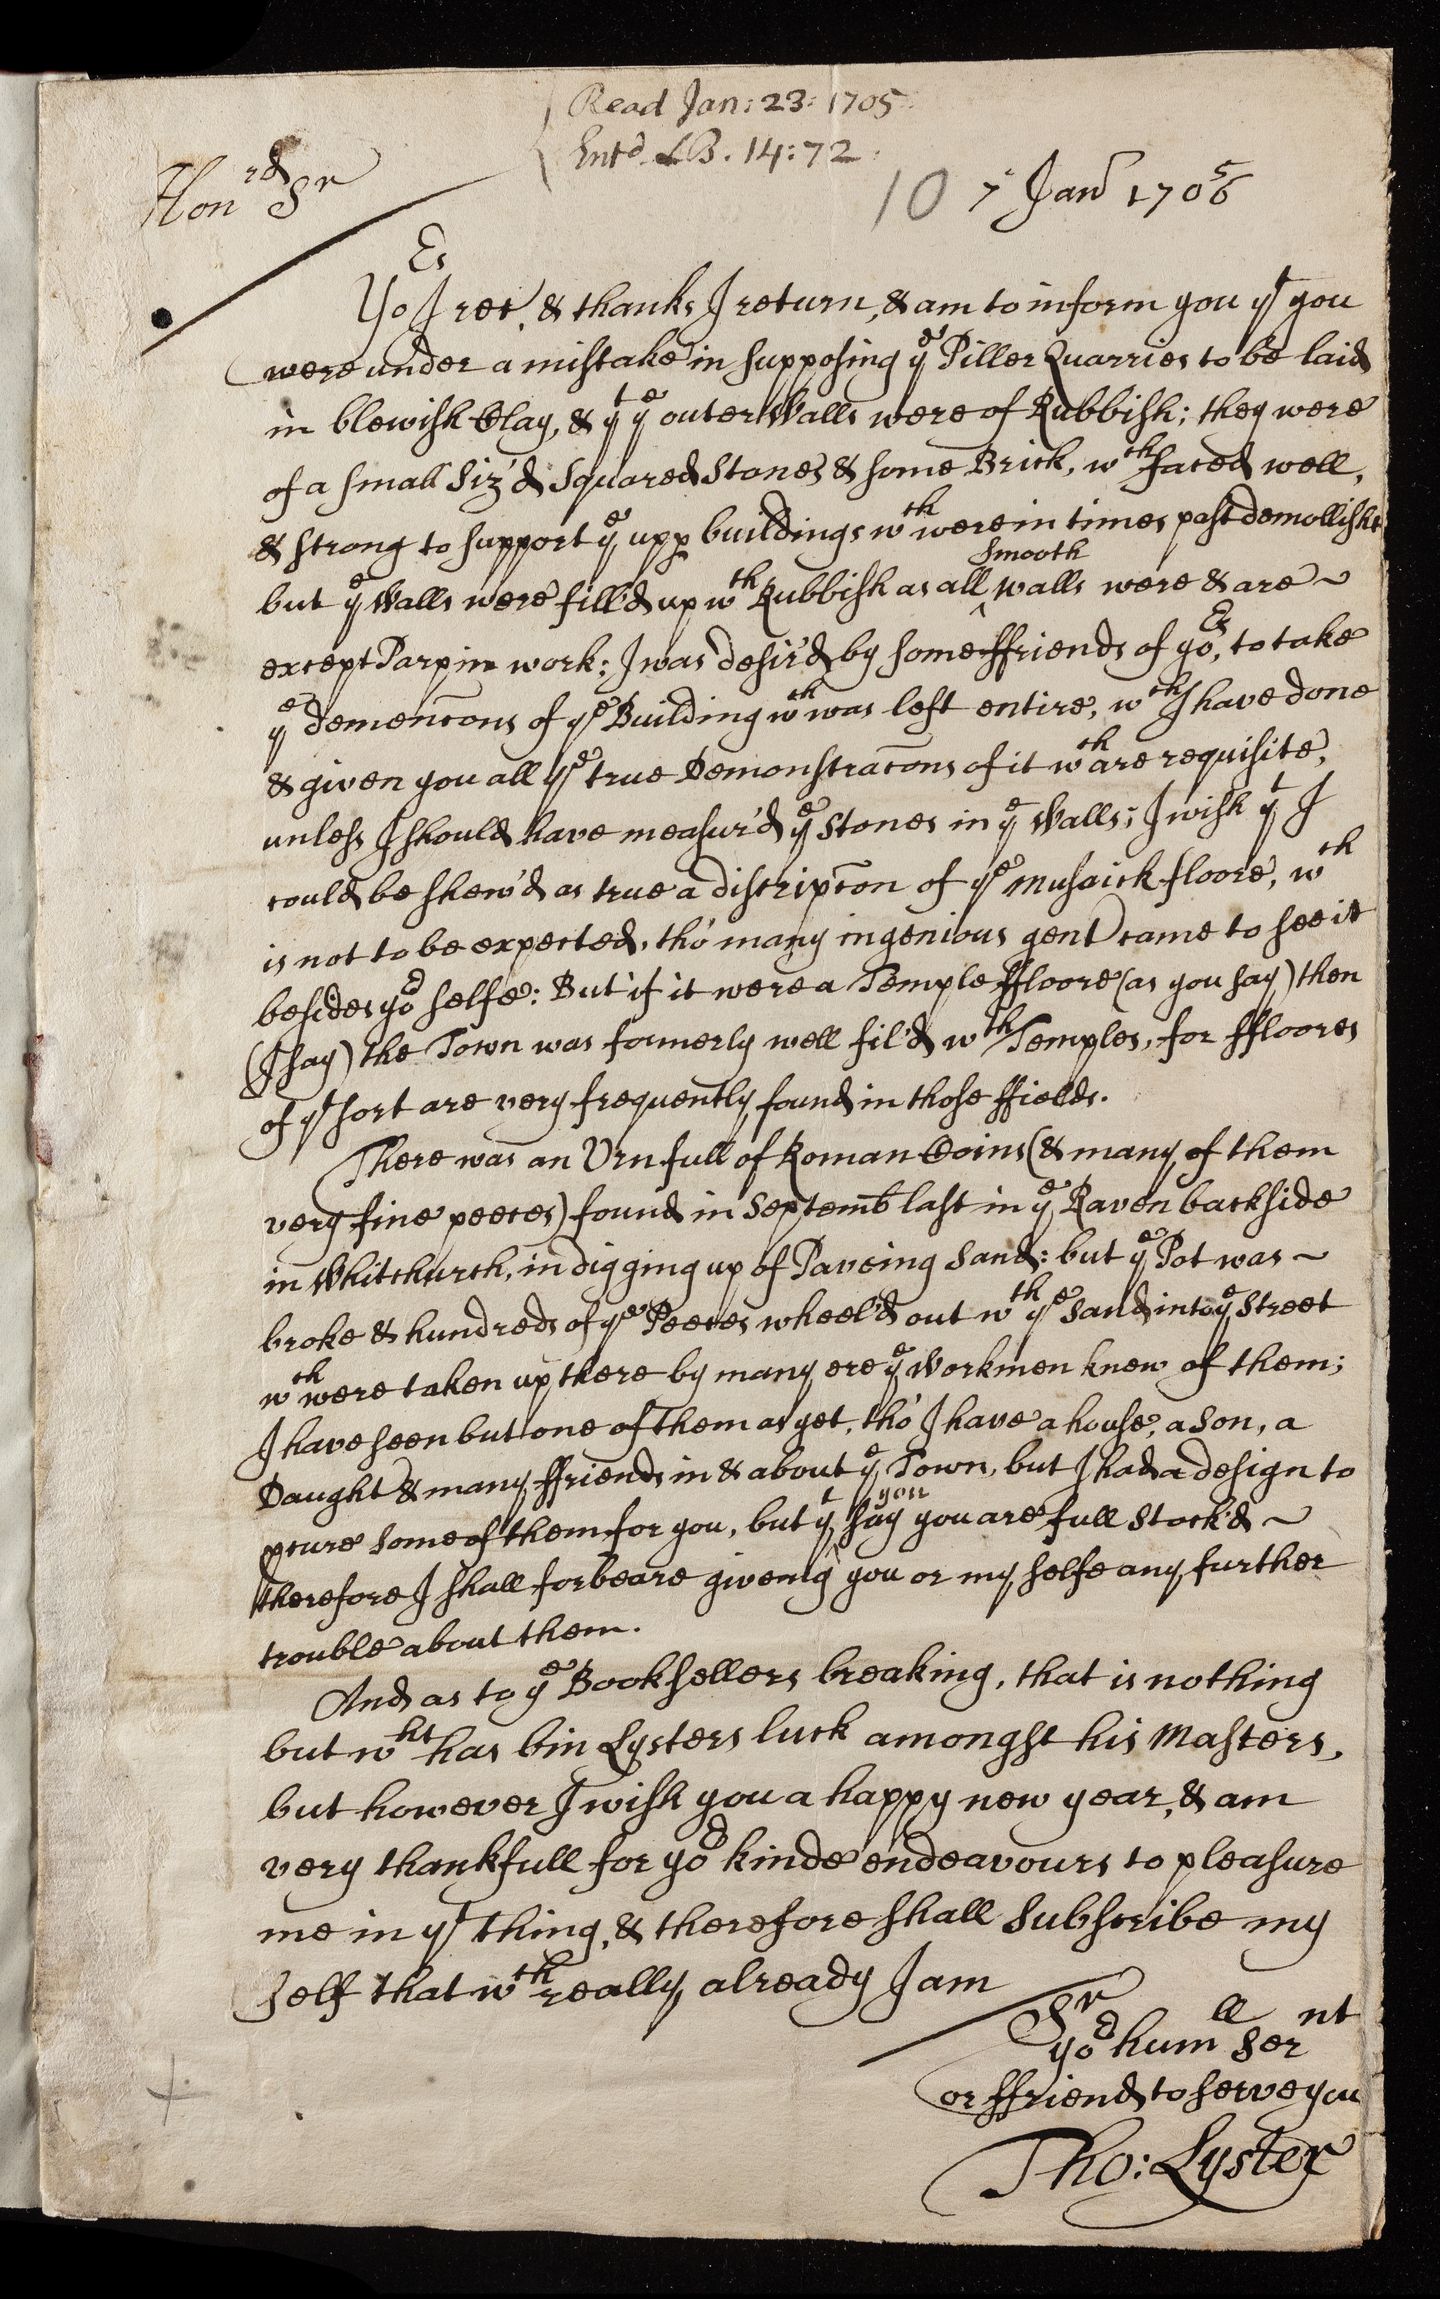 Read Jan: 23: 1705
Ent^d. LB. 14:72.
Hon^rd S^r
10 7^o Jan^r 170 5/6
Yo^rs I rec^d. & thanks I return, & am to inform you y^t you
were under a mistake in supposing y^e Piller Quarries to be laid
in blewish Clay, & y^t y^e outer Walls were of Rubbish; they were
of a small Siz'd Squared Stones & some Brick, w^ch faced well,
& strong to support y^e upp buildings w^ch were in times past demollisht
but y^e Walls were fill'd up w^th Rubbish as all ^smooth walls were & are ~
except Parpin work: I was desir'd by some ffriends of yo^rs, to take
y^e demencons of y^e Building w^ch was left entire, w^ch I have done
& given you all y^e true Demonstracons of it w^ch are requisite,
unless I should have measur'd y^e Stones in y^e Walls; I wish y^t I
could be shew'd as true a discripcon of y^e Musaick floore, w^ch
is not to be expected, tho' many ingenious gent came to see it
besides yo^r selfe: But if it were a Temple ffloore (as you say) then
(I say) the Town was formerly well fil'd w^th Temples, for ffloores
of y^t sort are very frequently found in those ffields.
There was an Urn full of Roman Coins (& many of them
very fine peeces) found in Septemb^r last in y^e Raven backside
in Whitchurch, in digging up of Paveing Sand: but y^e Pot was ~
broke & hundreds of y^e Peeces wheel'd out w^th y^e Sand into y^e Street
w^ch were taken up there by many ere y^e Workmen knew of them;
I have seen but one of them as yet, tho' I have a house, a Son, a
Daught^r & many ffriends in & about y^e Town, but I had a design to
pcure some of them for you, but y^t ^you say you are full Stock'd ~
therefore I shall forbeare giveing you or my selfe any further
trouble about them.
And as to y^e Booksellers breaking, that is nothing
but w^ht has bin Lysters luck amongst his Masters,
but however I wish you a happy new year, & am
very thankfull for yo^r kinde endeavours to pleasure
me in y^t thing, & therefore shall Subscribe my
self that w^ch really already I am
S^r
yo^r hum^ll Ser^nt
or ffriend to serve you
Tho: Lyster